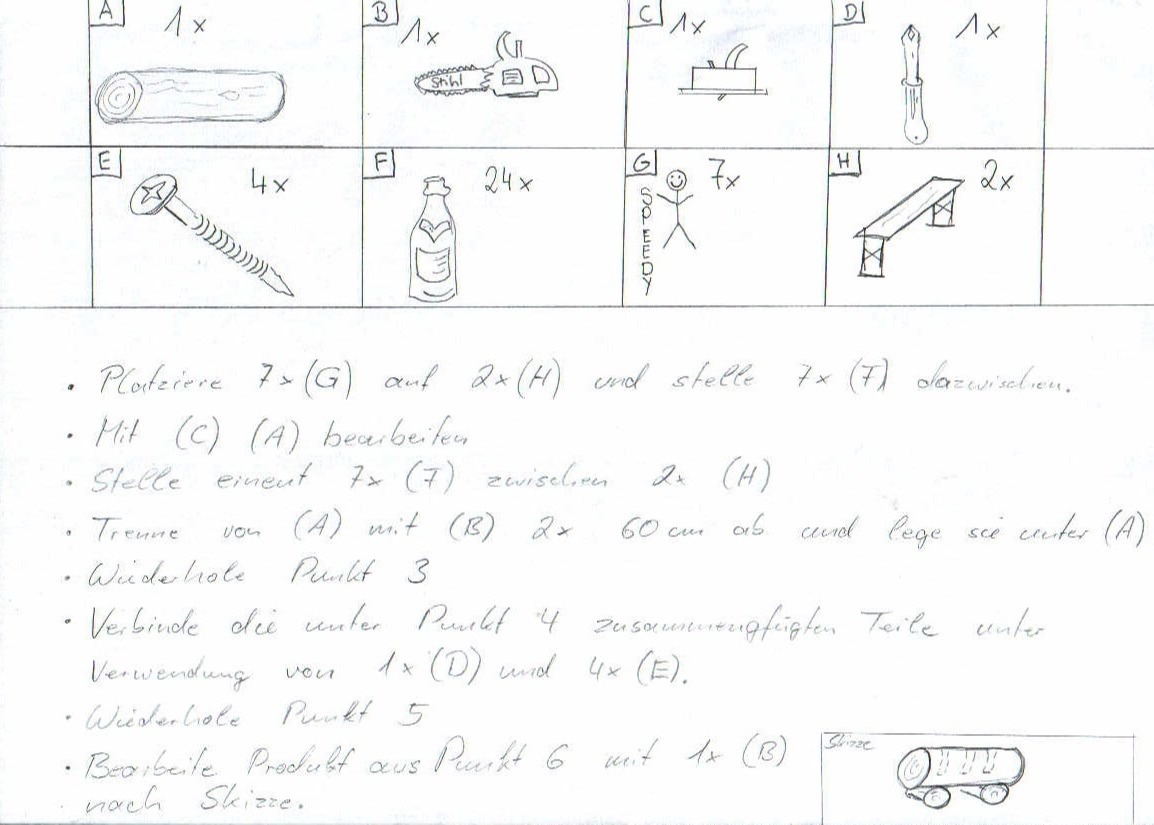 A 1x
B 1x
Stihl
C 1x
D 1x
E 4x
F 24x
G 7x
SPEEDY
H 2x
• Platziere 7x (G) auf 2x (H) und stelle 7x (F) dazwischen.
• Mit (C) (A) bearbeiten
• Stelle eineut 7x (F) zwischen 2x (H)
• Trenne von (A) mit (B) 2x 60 cm ab und lege sie unter (A)
• Wiederhole Punkt 3
• Verbinde die unter Punkt 4 zusammengfügten Teile unter
Verwendung von 1x (D) und 4x (E).
• Wiederhole Punkt 5
• Bearbeite Produkt aus Punkt 6 mit 1x (B)
nach Skizze.
Skizze